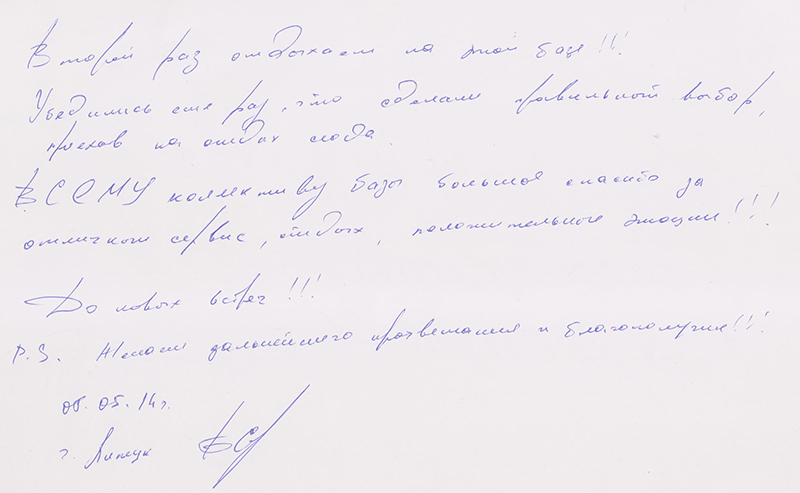 Второй раз отдыхаем на этой базе!!!
Убедились еще раз, что сделали правильный выбор,
приехав на отдых сюда.
ВСЕМУ коллективу базы большое спасибо за
отличный сервис, отдых, положительные эмоции!!!
До новых встреч!!!
P.S. Желаем дальнейшего процветания и благополучия!!!
05.05.14г.
г. Липецк